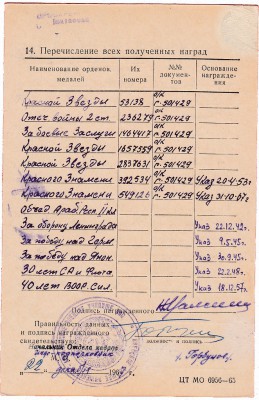 14. Перечисление всех полученных наград
Наименование орденов, медалей
Их номера
№№ документов
Основание награждения
Красной Звезды 53138 о/к г-501429
Отеч. войны 2 ст. 236279 о/к г-501429
За боевые Заслуги 1464417 о/к г-501429
Красной Звезды 1657559 о/к г-501429
Красной Звезды 2837631 о/к г-501429
Красного Знамени 392534 о/к г-501429 Указ 20.4.53г
Красного Знамени 549126 о/к г-501429 Указ 31.10.67г.
За оборону Ленинграда Указ 22.12.42г.
За победу над Герм. Указ 9.5.45г.
За победу над Япон. Указ 30.9.45г.
30 лет СА и Флота Указ 22.2.48г.
40 лет Воор. Сил. Указ 18.12.57г.
Подпись награжденного
Правильность данных
и подпись награжденного
свидетельствую
должность и подпись
Начальник Отдела кадров
подполковник
г. Горбунов
22 декабря 196
ЦТ МО 6956—65